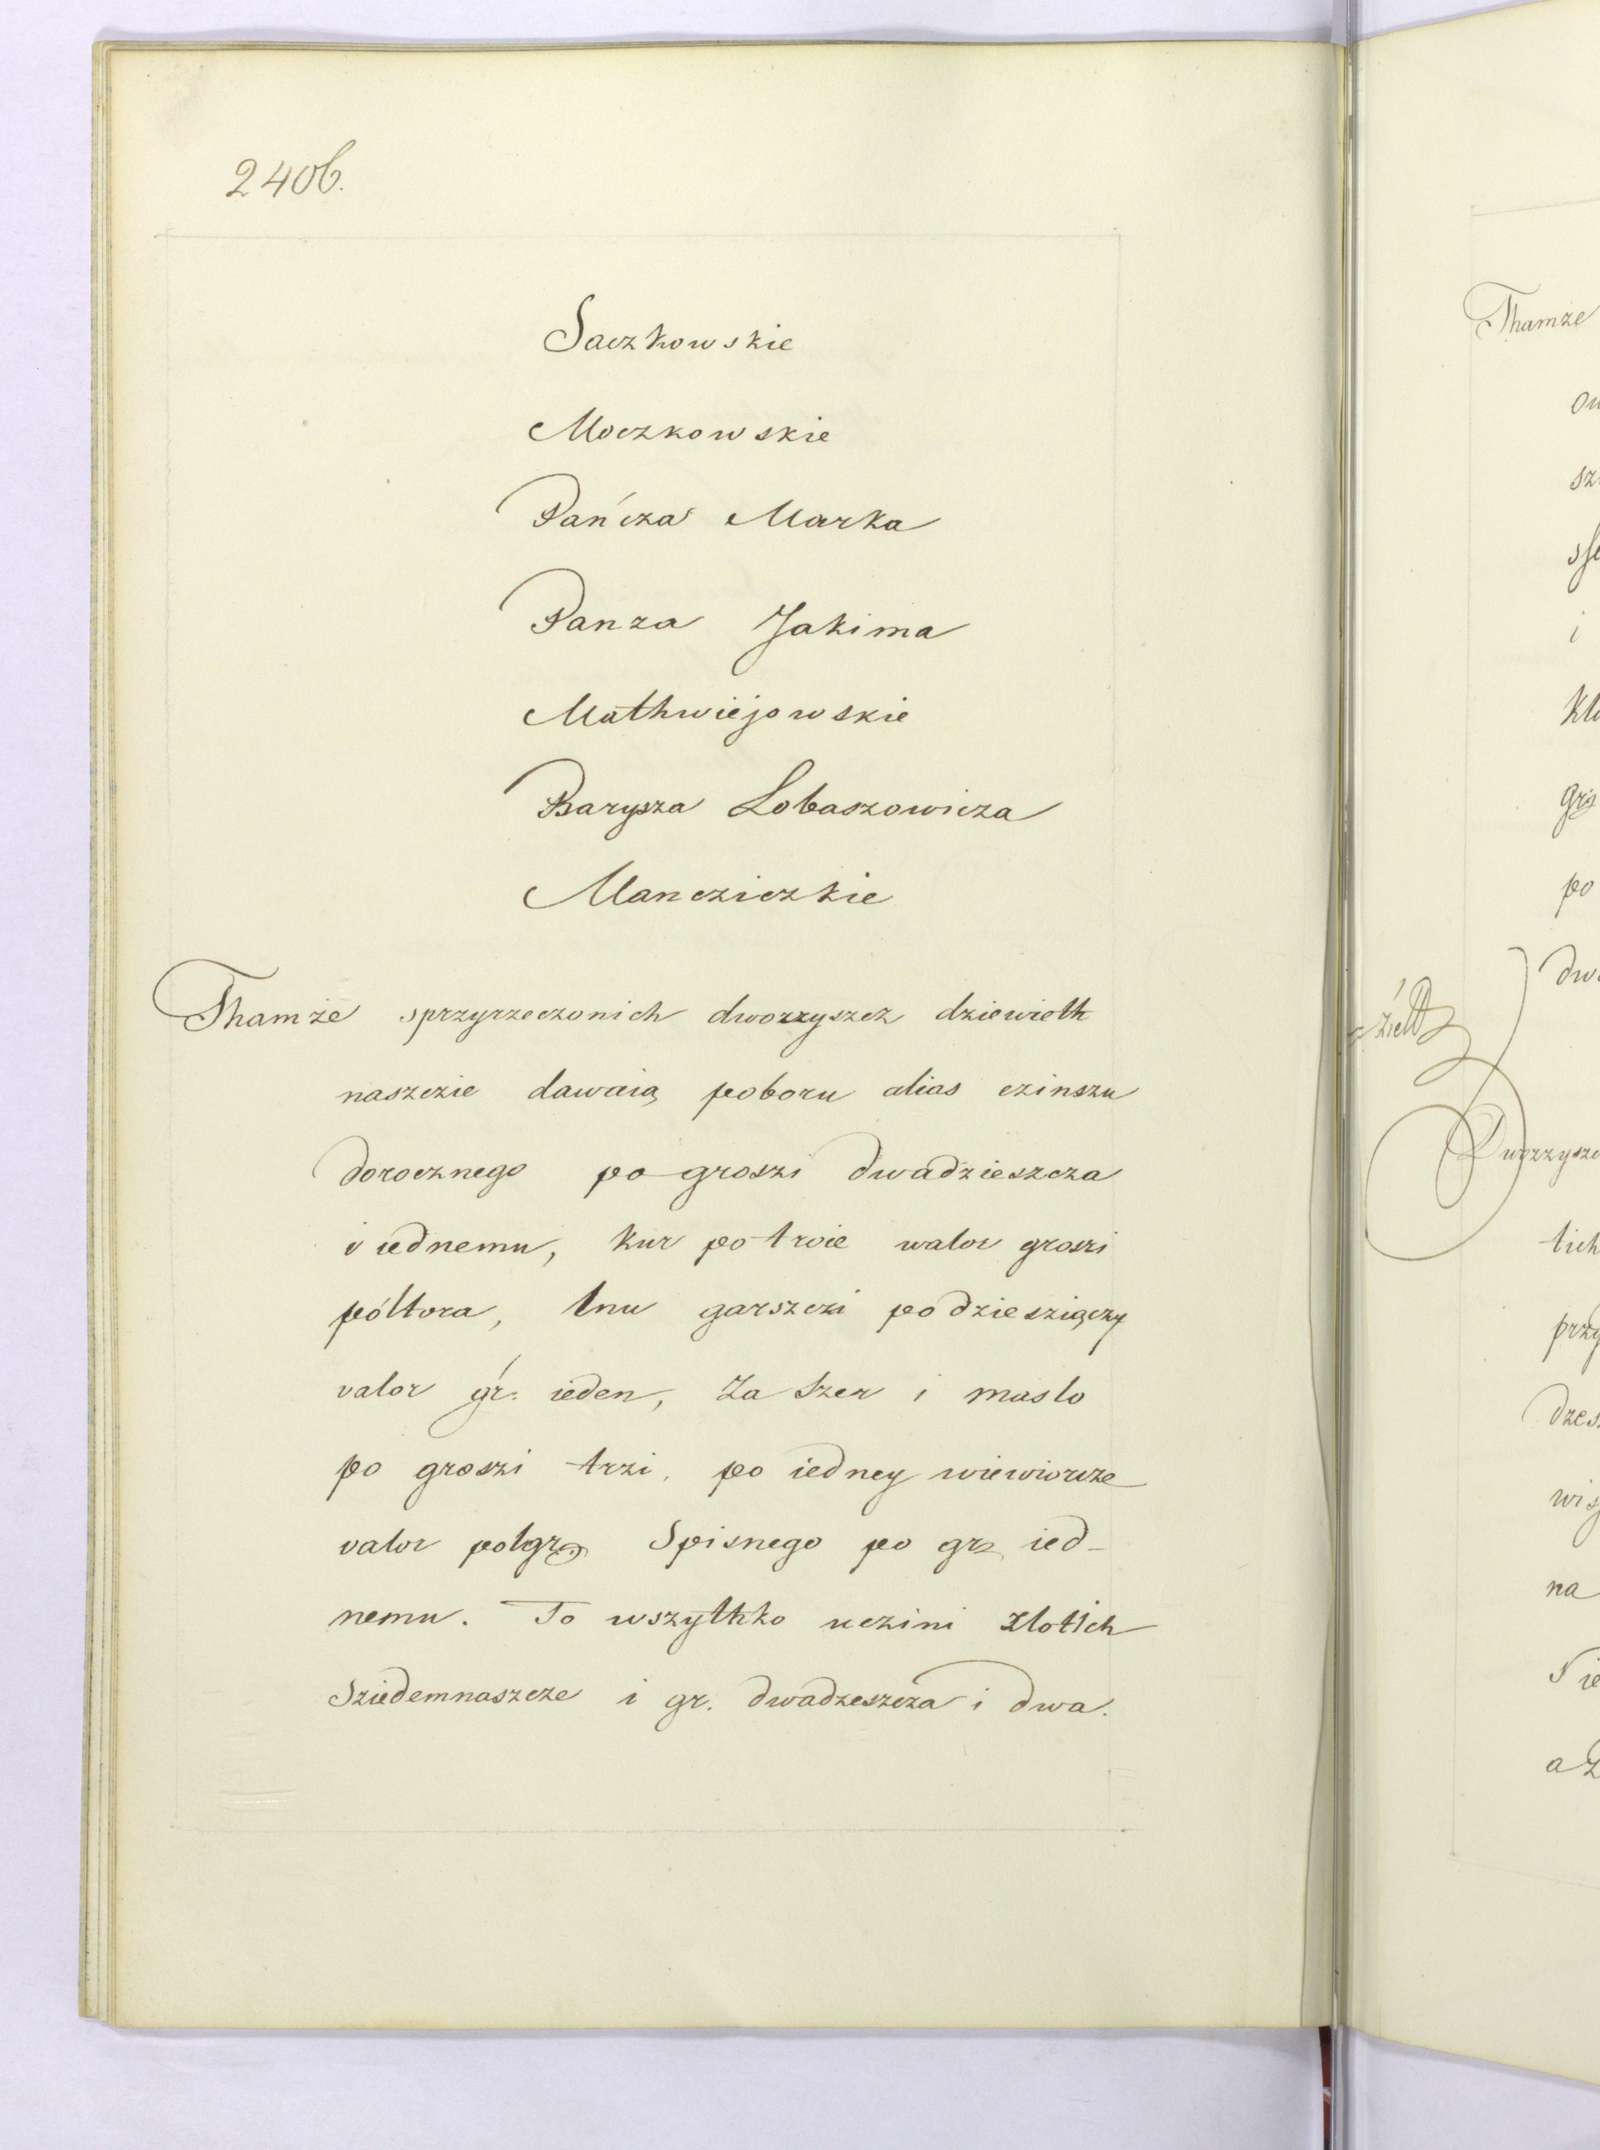 2406.
Saczkowskie
Moczkowskie
Pańcza Marka
Panza Jakima
Mathwiejowskie
Barysza Lobaszowicza
Mancziczkie
Thamże sprzyrzeczonich dworzyszcz dziewieth
naszczie dawaią poboru alias czinszu
dorocznego po groszi dwadzieszcza
i iednemu, kur po troie walor groszi
póltora, lnu garszczi po dziesziączy
valor gr. ieden, Za Szer i maslo
po groszi trzi, po iedney wiewiorcze
valor polgr Spisnego po gr ied-
nemu. To wszythko uczini zlotich
Sziedemnaszcze i gr. dwadzeszcza i dwa.
Thamże
sz
i
po
Dworzysz
tich
przy
dzes
na